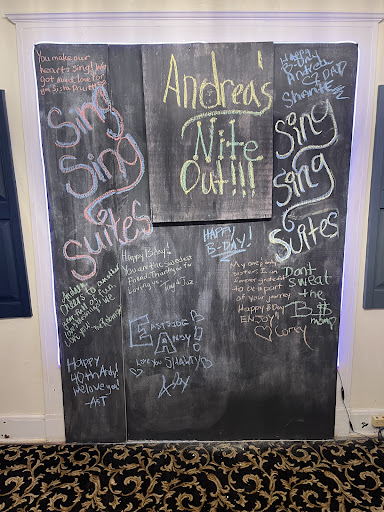 You make our
hearts sing! We
got much love for
ya Sista Pruitt!
Sing
Sing
Suites
Andrea's
Nite
Out!!!
Happy
B-Day
Andrea
Shante
Sing
Sing
Suites
Happy B-day!
You are the sweetest
friend. Thank you for
loving us.
Tony & Jaz
HAPPY
B-DAY!
My one & only
sister! I am
forever grateful
to be a part
of your journey.
Happy B-Day!
ENJOY!
Corey
Don't
sweat
the
B $
Andrea
Cheers to another
year full of fun,
We
love you!
EASTSIDE
ANDY!
Love you SHAWTY
Happy
40th Andy!
We love you!
-A&T